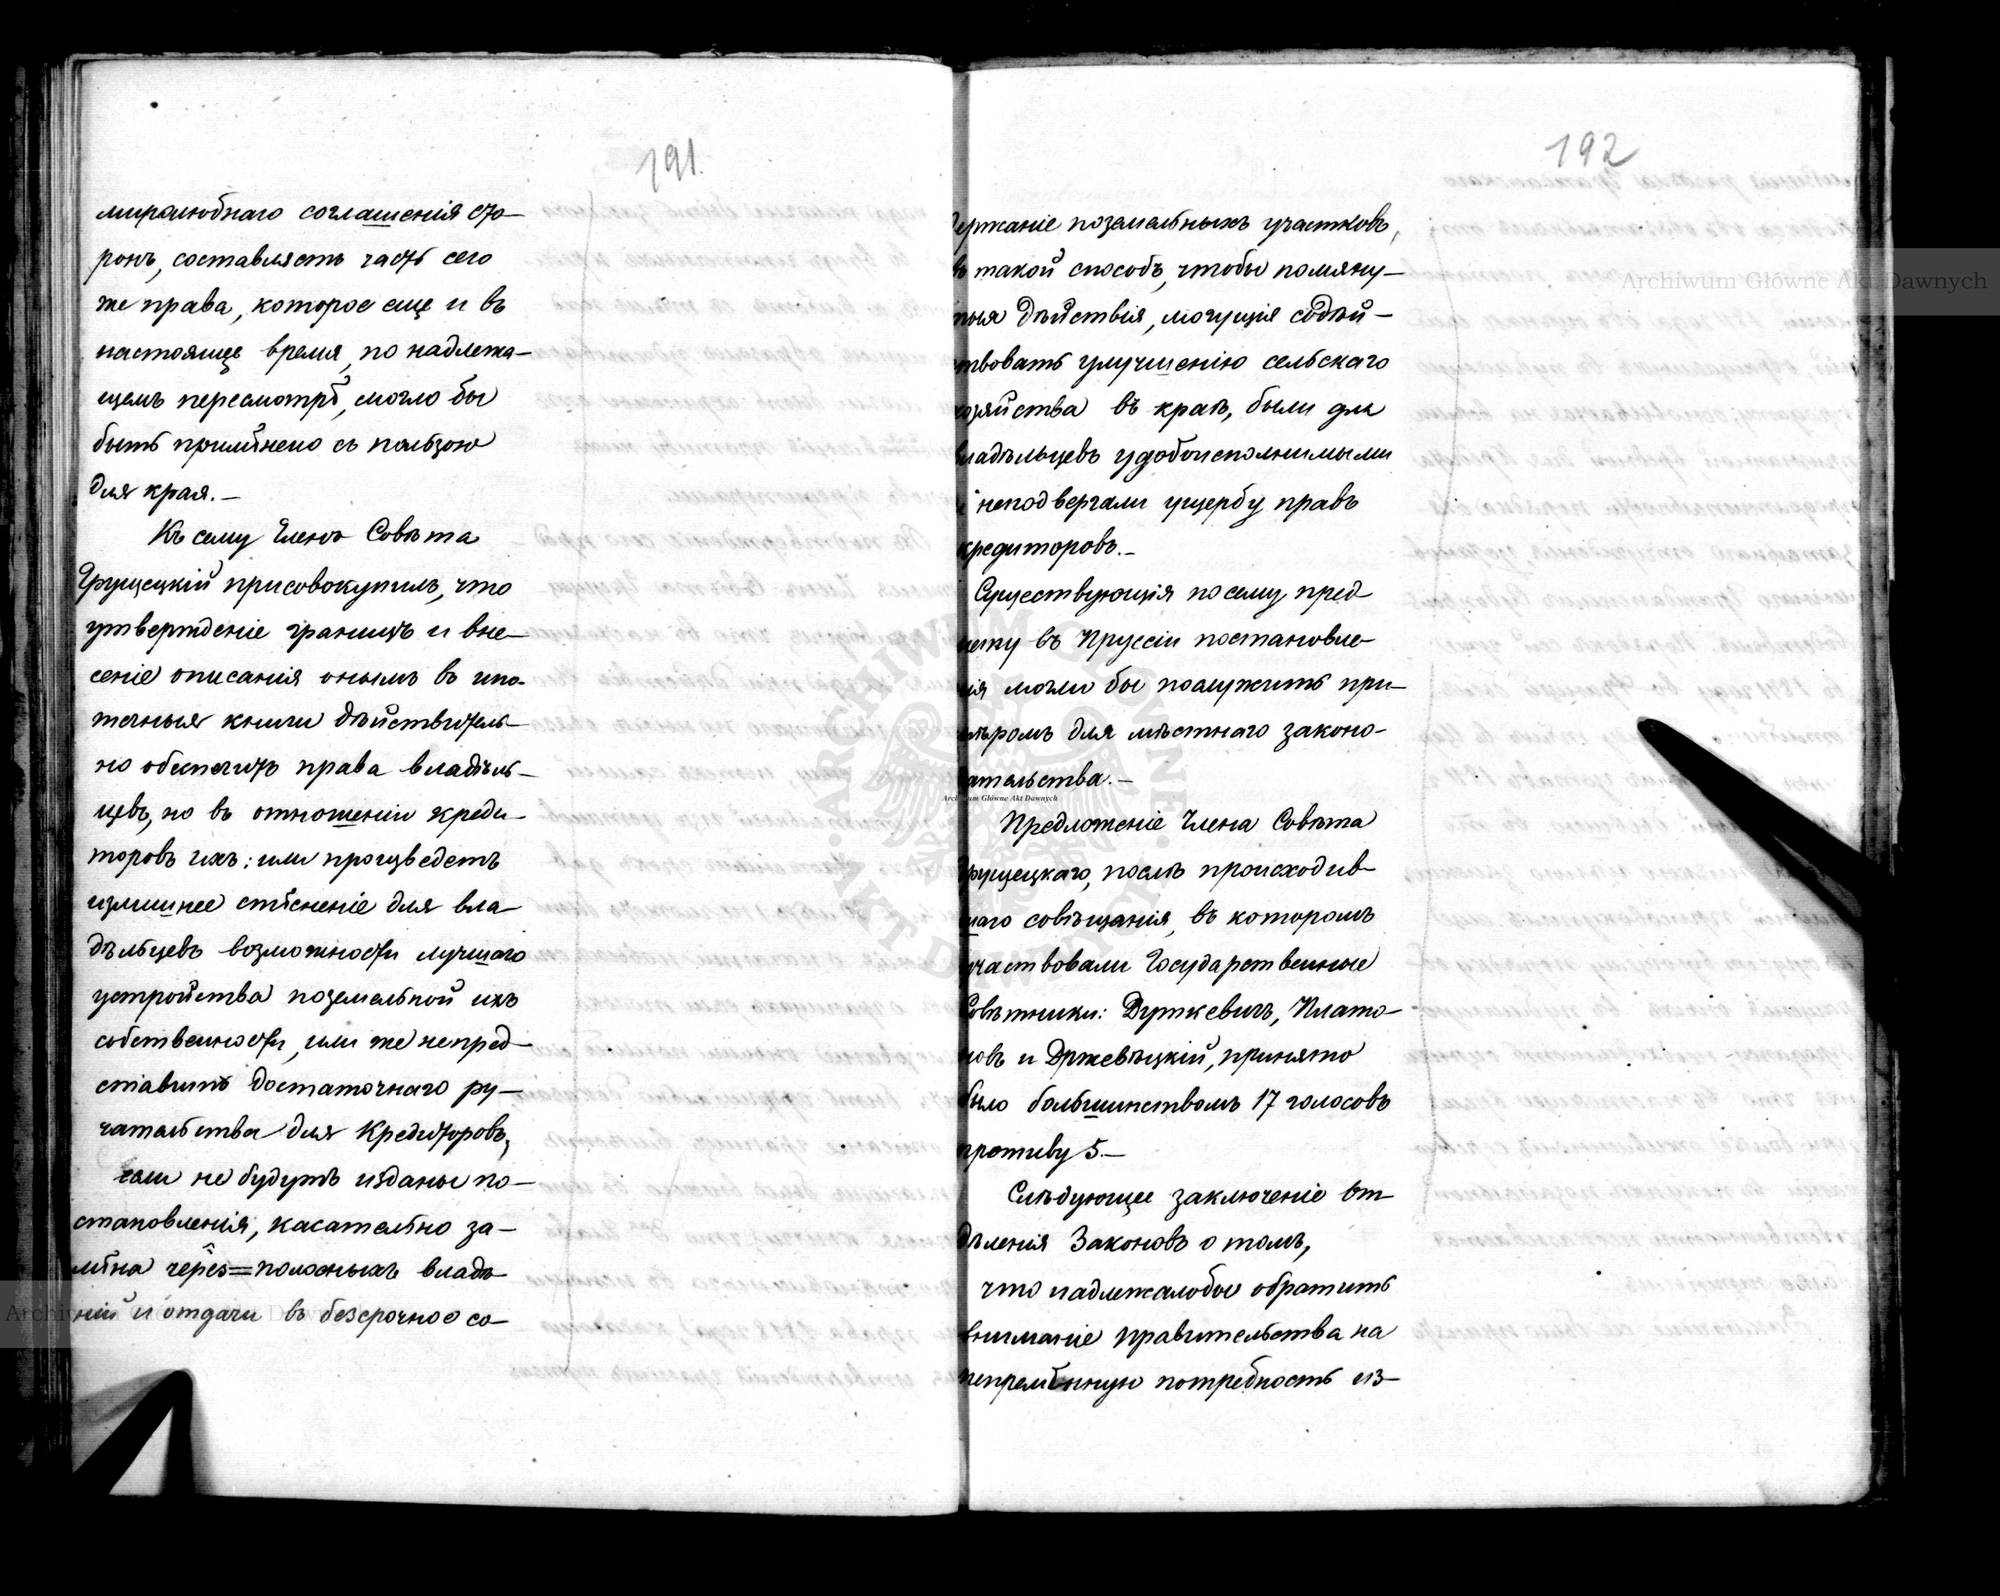 191.
миролюбнаго соглашенія сто-
ронъ, составляетъ часть сего
же права, которое еще и въ
настоящее время, по надлежа-
щемъ пересмотрѣ, могло бы
быть примѣнено съ пользою
для края.-
Къ сему Членъ Совѣта
Грущецкій присовокупилъ, что
утвержденіе границъ и вне-
сеніе описанія онымъ въ ипо-
течныя книги дѣйствитель-
но обезпечитъ права владѣль-
цевъ, но въ отношеніи креди-
торовъ ихъ: или произведетъ
излишнее стѣсненіе для вла-
дѣльцевъ возможности лучшаго
устройства поземельной ихъ
собственности, или же непред-
ставитъ достаточнаго ру-
чательства для Кредиторовъ,
если не будутъ изданы по-
становленія, касательно за-
мѣна черезъ=полосныхъ владѣ-
ній и отдачи въ безсрочное со-
192
держаніе поземельныхъ участковъ,
въ такой способъ, чтобы помяну-
тыя дѣйствія, могущія содѣй-
ствовать улучшенію сельскаго
хозяйства въ краѣ, были для
владѣльцевъ удобоисполнимыми
и неподвергали ущербу правъ
кредиторовъ.-
Существующія по сему пред
мету въ Пруссіи постановле-
нія могли бы послужить при-
мѣромъ для мѣстнаго законо-
дательства.-
Предложеніе Члена Совѣта
Грущецкаго, послѣ происходив-
шаго совѣщанія, въ которомъ
участвовали Государственные
Совѣтники: Дуткевичъ, Плато-
новъ и Држевѣцкій, принято
было большинствомъ 17 голосовъ
противу 5.-
Слѣдующее заключеніе От-
дѣленія Законовъ о томъ,
что надлежалобы обратить
вниманіе Правительства на
непремѣнную потребность из-
Archiwum Główne Akt Dawnych